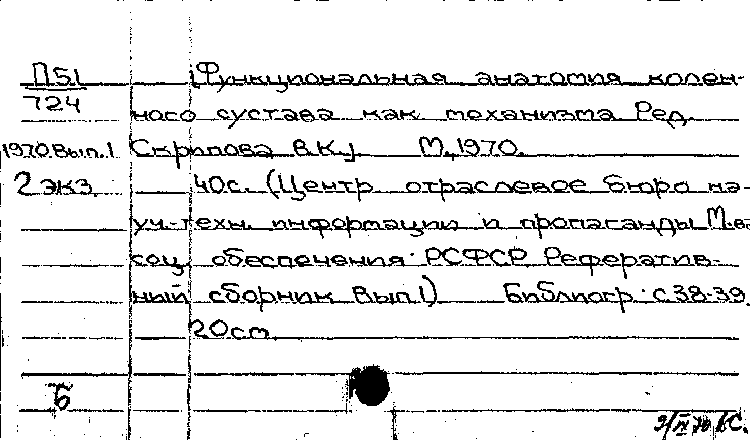 П51 [Функциональная анатомия колен-
724 ного сустава как механизма Ред.
1970.Вып.1 Скрипова В.К.] М., 1970.
2 экз. 40с. (Центр. отраслевое бюро на-
уч.-техн. информации и пропаганды М-ва
соц. обеспечения РСФСР. Реферątив-
ный сборник Вып.1) Библиогр.: с.38-39.
20 см.
Б